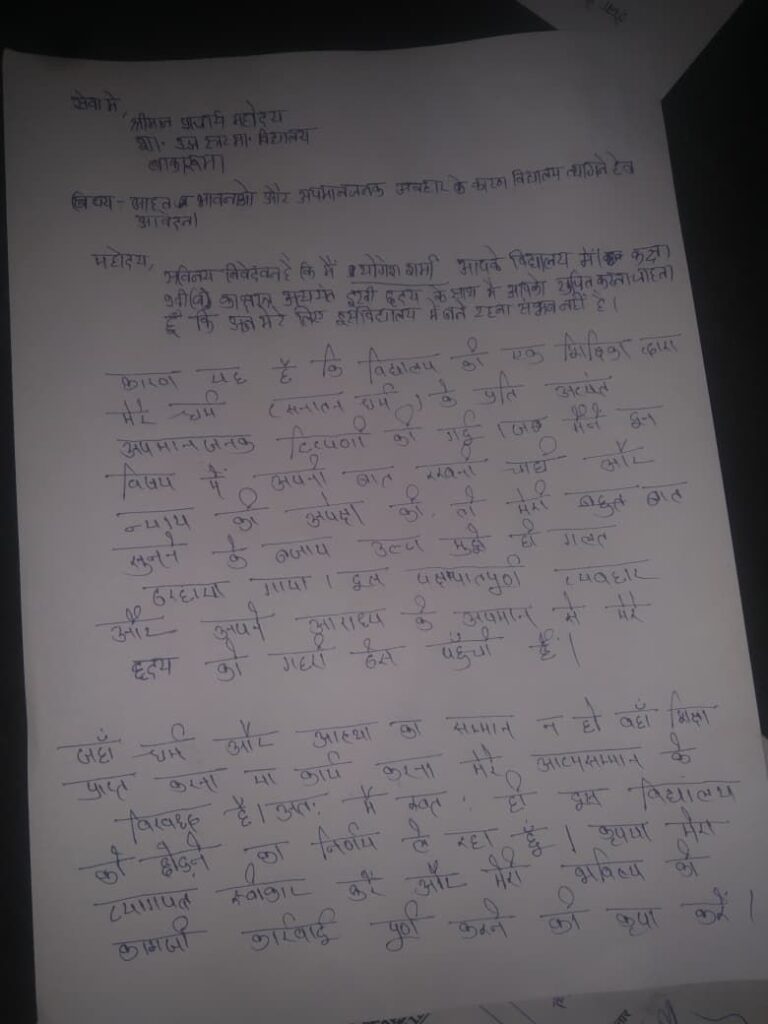 सेवा में,
श्रीमान प्राचार्य महोदय
शा. उच्च मा. विद्यालय
विषय - आहत भावनाओ और अपमानजनक व्यवहार के कारण विद्यालय त्यागने हेतु
आवेदन।
महोदय,
सविनय निवेदन है कि मैं योगेश शर्मा आपके विद्यालय में कक्षा
दुखी हृदय के साथ मै आपको सूचित करना चाहता
हूँ कि अब मेरे लिए इस विद्यालय में बने रहना संभव नहीं है।
कारण यह है कि विद्यालय की एक शिक्षिका द्वारा
मेरे धर्म (सनातन धर्म) के प्रति अत्यंत
अपमानजनक टिप्पणी की गई। जब मैंने इस
विषय में अपनी बात रखनी चाही और
न्याय की अपेक्षा की, तो मेरी बात
सुनने के बजाय उल्टा मुझे ही गलत
ठहराया गया। इस पक्षपातपूर्ण व्यवहार
और अपने आराध्य के अपमान से मेरे
हृदय को गहरी ठेस पहुँची है।
जहाँ धर्म और आस्था का सम्मान न हो वहाँ शिक्षा
प्राप्त करना या कार्य करना मेरे आत्मसम्मान के
विरुद्ध है। अतः मैं स्वतः ही इस विद्यालय
को छोड़ने का निर्णय ले रहा हूँ। कृपया मेरा
त्यागपत्र स्वीकार करें और मेरी भविष्य की
कागजी कार्रवाई पूर्ण करने की कृपा करें।